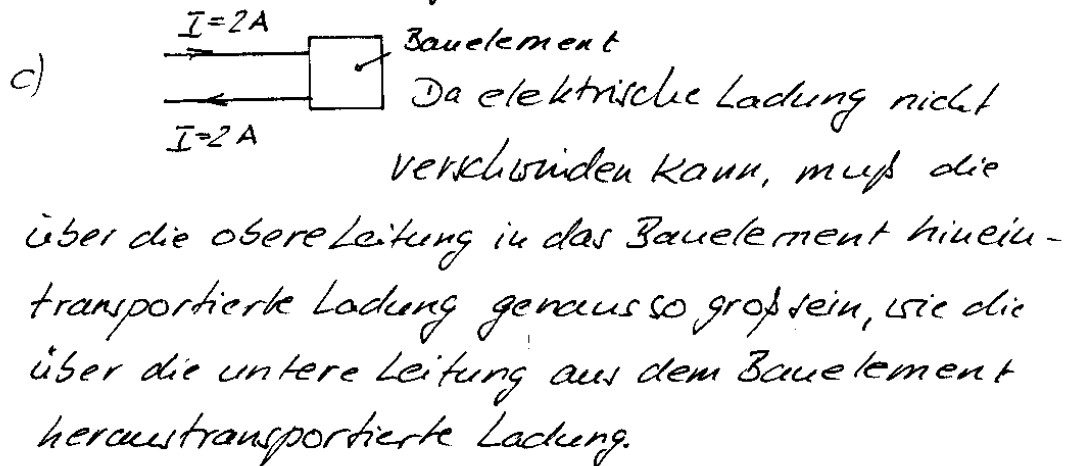 I=2A
Bauelement
c)
Da elektrische Ladung nicht
I=2A
verschwinden kann, muß die
über die obere Leitung in das Bauelement hinein-
transportierte Ladung genauso groß sein, wie die
über die untere Leitung aus dem Bauelement
heraustransportierte Ladung.